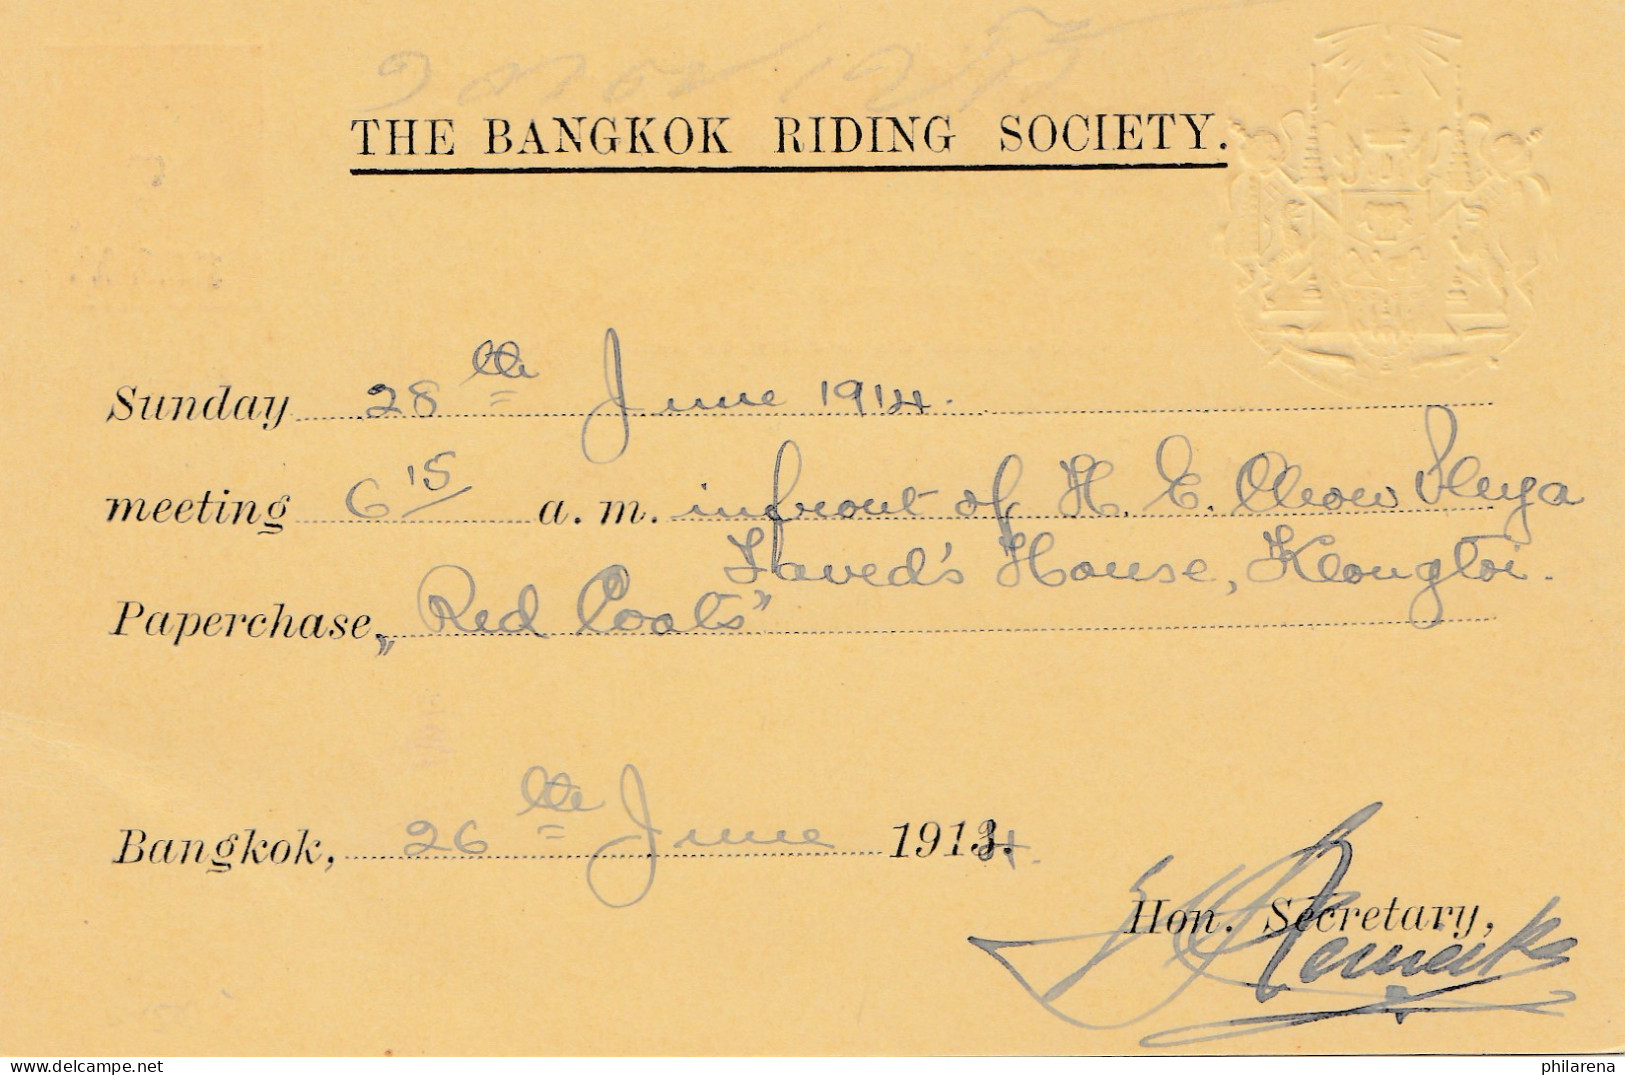 THE BANGKOK RIDING SOCIETY.
Sunday 28th June 1914.
meeting 6 15/ a.m. infront of H. E. Chow Phya
Javed's House, Klongtoi.
Paperchase „Red Coats"
Bangkok, 26th June 1914.
Hon. Secretary,
philarena